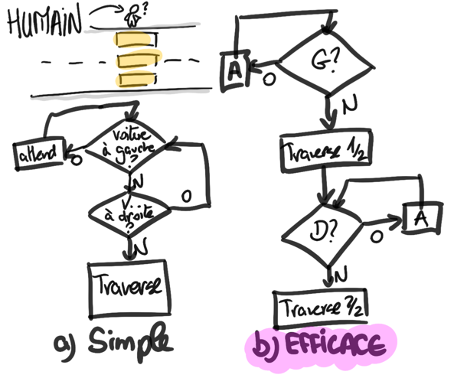 HUMAIN
?
voiture
à gauche
?
attend
O
N
V...
à droite
?
O
N
Traverse
a) Simple
G?
A
O
N
Traverse 1/2
D?
O
A
N
Traverse 2/2
b) EFFICACE